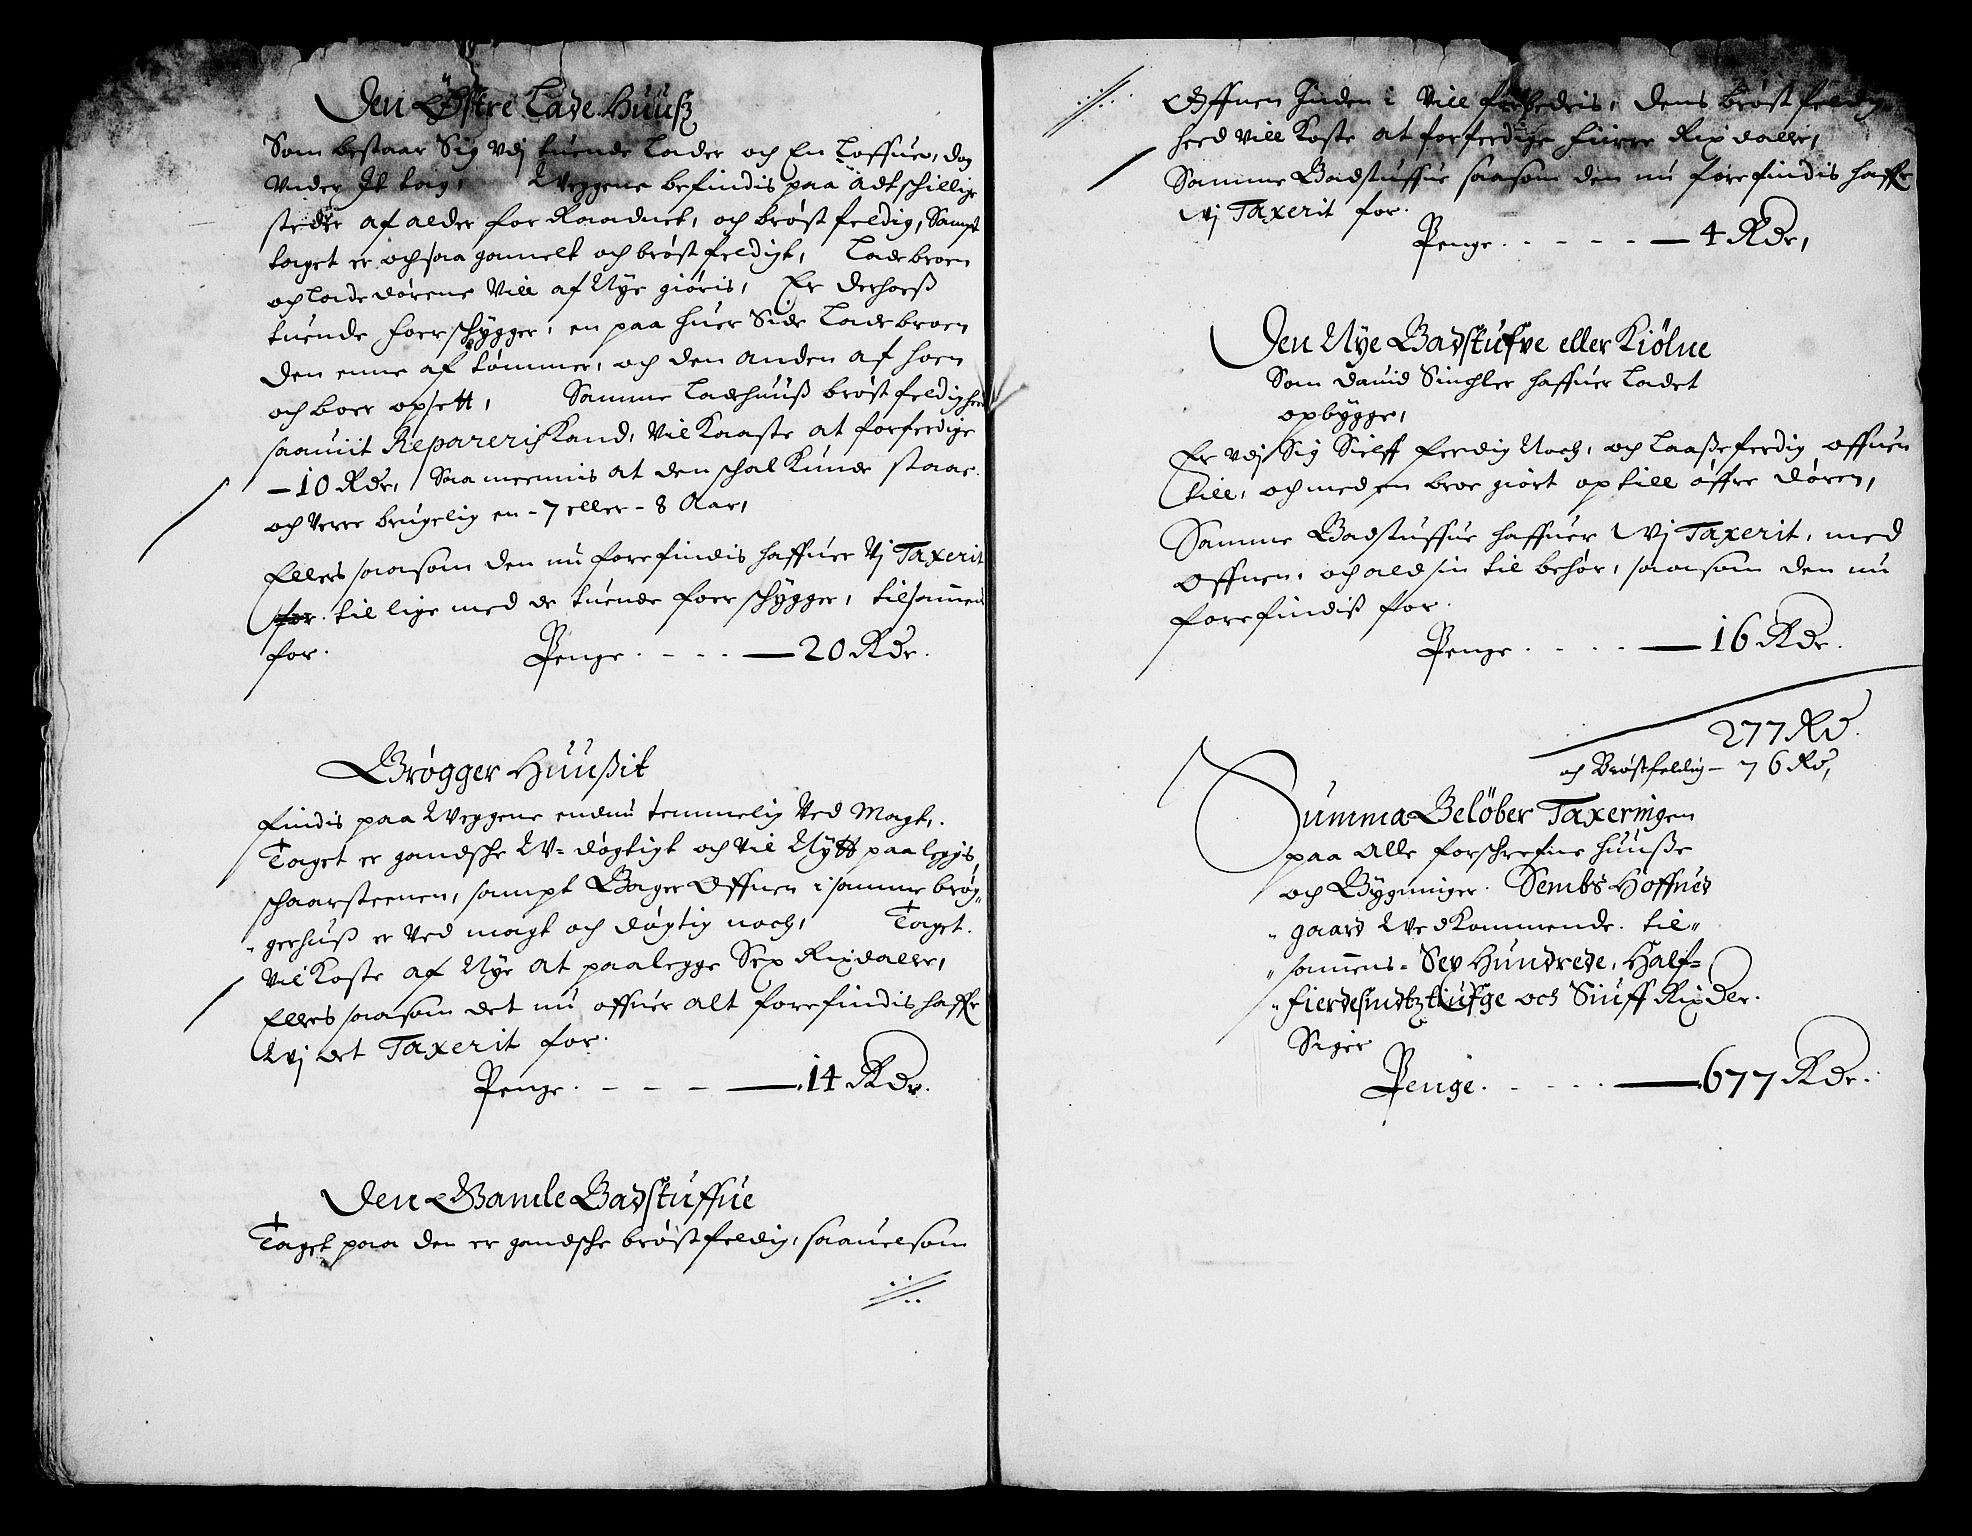 Den Østre Lade Huuß
Som bestaar Sig Vdj tuende Lader och En Loffue, dog
Vnder Jt tag, Weggene befindis paa Adtschillige
steder af alder for Raadnet, och brøstfeldig, Sampt
taget er ochsaa gamelt och brøstfeldigt, Ladebroen
och Ladedørene Vill af Nye giøris, Er derhoeß
tuende foerschygger, en paa huer Side Ladebroen
den enne af tømmer, och den anden af
och boer opsett, Samme Ladehuuß brøstfeldighed
saauiit Repareris Kand, Vil Kaaste at forferdige
– 10 Rdr, Saa meenis at den schal Kunde staae
och Verre brugelig en – 7 eller – 8 Aar,
Ellers saasom den nu forefindis haffuer Vj Taxerit
for. til lige med de tuende foerschygger, tilsammen
for.
Penge. - - - — 20 Rdr.
Brøgger Huußit
findis paa Weggene endnu temmelig Ved Magt,.
Taget er gandsche W-døgtigt och vil Nytt paaleggis,
schaarsteenen, sampt Bager Offnen i samme brøg„
„gerhuß er Ved magt och døgtig noch, Taget
Vil Koste af Nye at paalegge Sex Rixdaller,
Ellers saasom det nu offuer alt forefindis haffr
Wj det Taxerit for.
Penge. - - - — 14 Rdr.
Den Gamle Badstuffue
Taget paa den er gandsche brøstfeldig, saauelsom
Offnen Inden i Vill forbedris, dens brøstfeldig„
hed vill Koste at forferdige fiirre Rixdaller,
Samme Badstuffue saasom den nu forefindis haffr
Wj Taxerit for.
Penge. - - - - — 4 Rdr,
Den Nye Badstufve eller Kiölne
Som Dauid Sinchler haffuer Ladet
opbÿgge,
Er vdj Sig Sielff ferdig Noch, och Laaßeferdig Offuen
till, och med en broe giört op till öffre dören,
Samme Badstuffue haffuer Wj Taxerit, med
Offnen, och ald sin til behör, saasom den nu
forefindiß for.
Penge. - - - - — 16 Rdr.
277 Rd.
och Brøstfeldig – 76 Rd,
Summa Belöber Taxeringen
paa Alle forschrefne huuße
och Bygninger. Sembs Hoffued
„gaard Wedkommende. til„
„sammens – Sex Hundrede, Half–
„fierdesindtztiufge och Siuff Rixdlr.
Siger
Penge. - - - - — 677 Rdr.